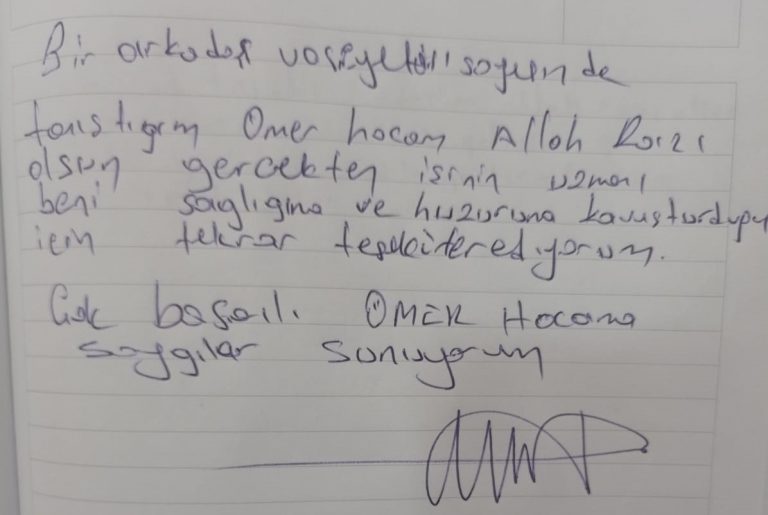 Bir arkadaş vasiyetiiı sayesinde
tanıştıgım Ömer hocam Allah Razı
olsun gerçekten işinin uzmanı
beni saglıgıma ve huzuruma kavuşturdugu
için tekrar teşekkür ediyorum.
Çok başarılı ÖMER Hocama
saygılar sunuyorum